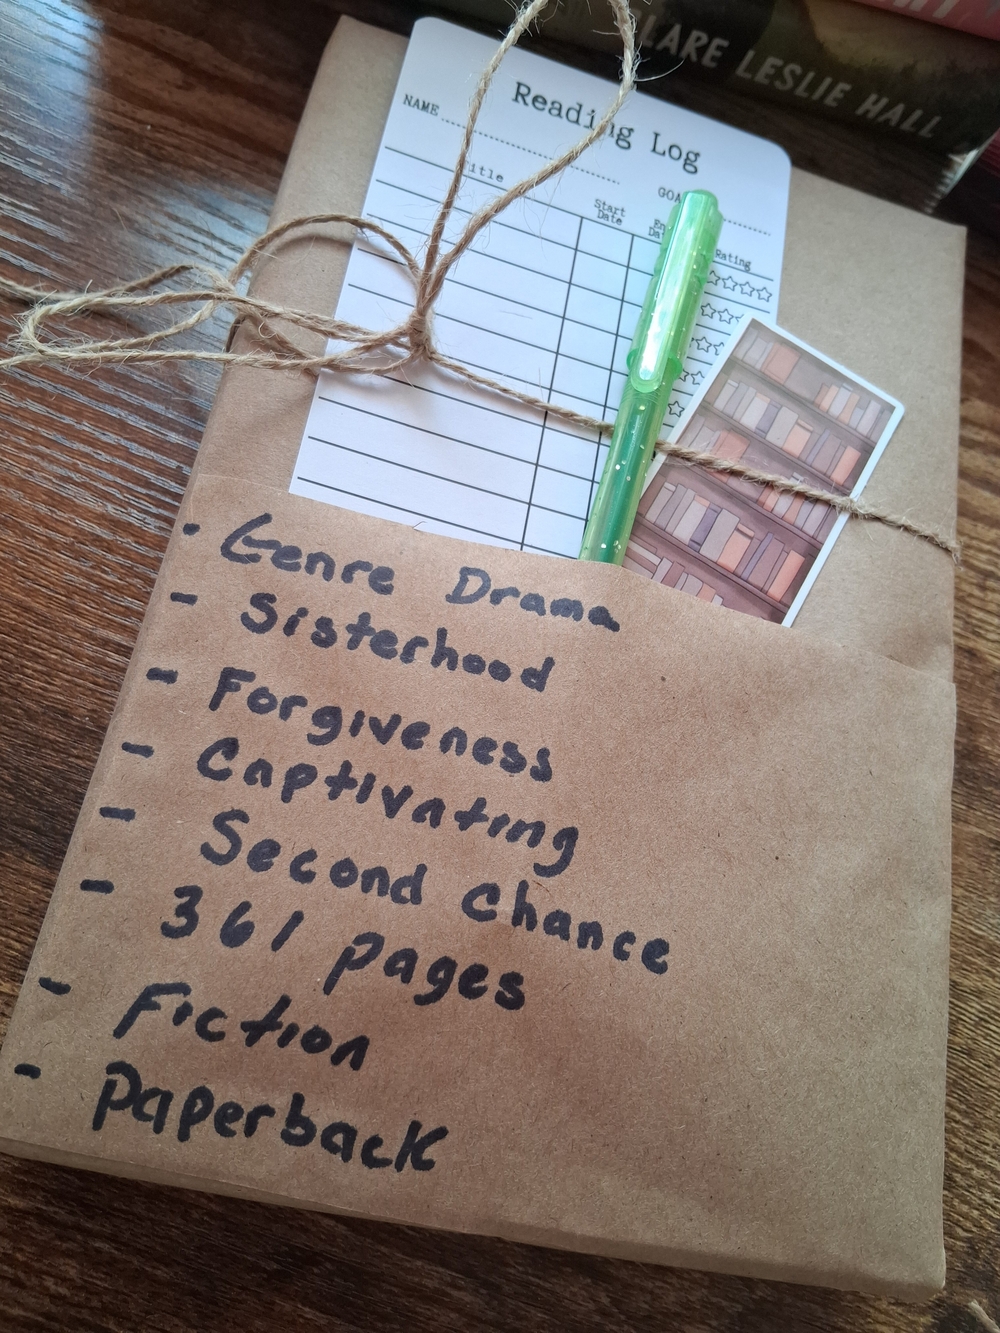 LARE LESLIE HALL
Reading Log
NAME
Title
Start Date
Rating
- Genre Drama
- Sisterhood
- Forgiveness
- Captivating
- Second Chance
- 361 pages
- Fiction
- Paperback